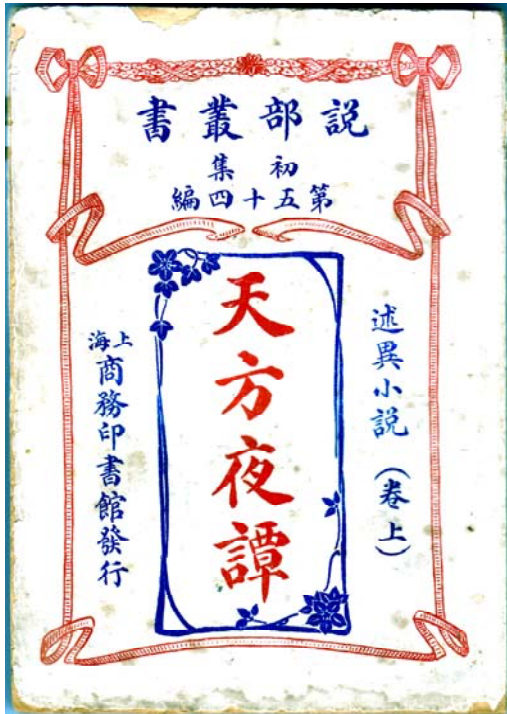 説部叢書
初集
第五十四編
述異小説（卷上）
天方夜譚
上海商務印書館發行